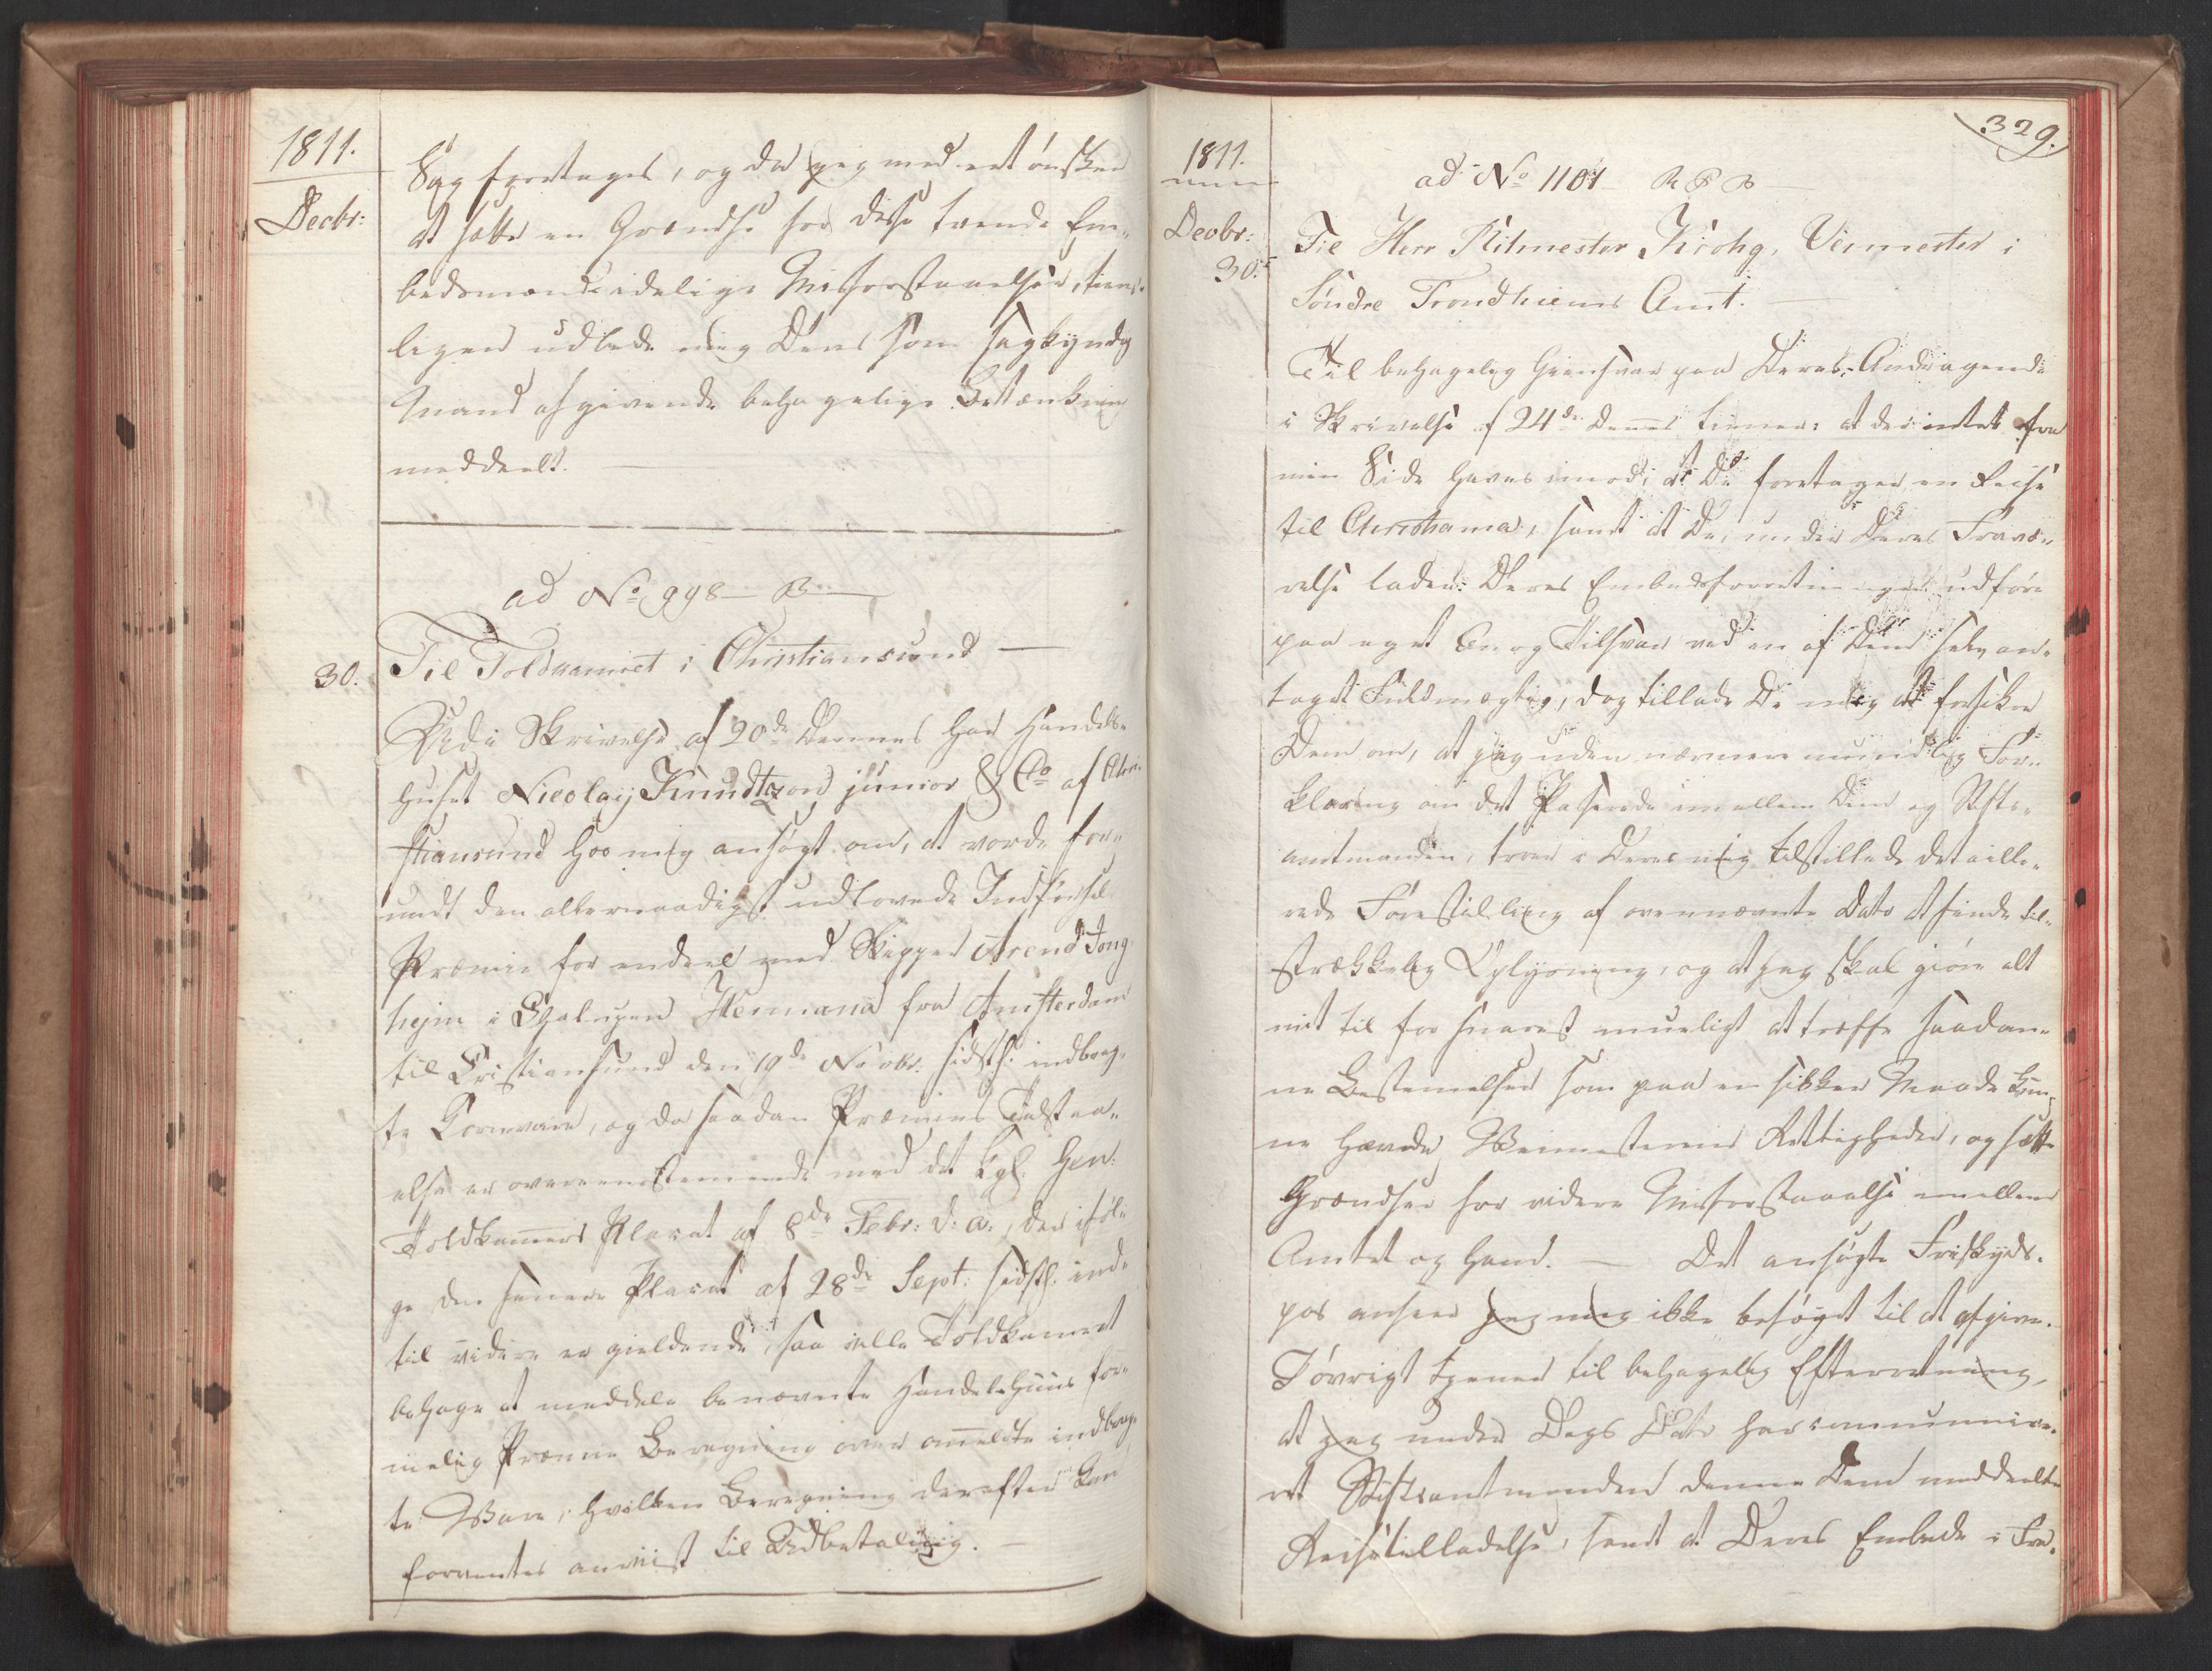 1811.
Decbr:
Sag foretages, og da jeg med ret ønsker
at sætte en Grændse for disse tvende Em-
bedsmænds idelige Misforstaaelser, tiene-
ligen udbede mig Deres som sagkyndig
Mand afgivende behagelige Betænkning
meddeelt.
ad No 998 B
30.
Til Toldkamret i Christiansund
Udi Skrivelse af 20de Dennes har Handels-
huset Nicolaij Knudtzon junior & Co af Chri-
stiansund hos mig ansøgt om, at vorde for-
undt den allernaadigst udlovede Indførsel
Præmie for endeel med Skipper Arend Jong
hejm i Chaluppen Hermana fra Amsterdam
til Cristiansund den 19de Novbr. sidstl: indbrag-
te Kornvare, og da saadan Præmies Tilstaa-
else er overeenstemmende med det Kgl. Gen:
Toldkammers Placat af 8de Febr: d: a:, der iføl-
ge den senere Placat af 28de Sept: sidstl: ind-
til videre er gieldende, saa ville Toldkamret
behage at meddele benævnte Handelshuus for-
melig Præmie Beregning over anmeldte indbrag-
te Vare, hvilken Beregning derefter kan
forventes anviist til Udbetaling.
329.
1811.
Decbr:
30.
ad No 1101 R P B
Til Herr Ritmester Krohg, Veimester i
Søndre Trondhiems Amt.
Til behagelig Giensvar paa Deres Andragende
i Skrivelse af 24de Dennes tiener: at der intet fra
min Side haves imod, at De foretager en Reise
til Christiania, samt at De, under Deres Fravæ-
relse lader Deres Embedsforretninger udføre
paa eget An og Tilsvar ved en af Dem selv an-
taget Fuldmægtig, dog tillade De mig at forsikre
Dem om, at jeg uden nærmere mundtlig For-
klaring om det Passerede imellem Dem og Stifts-
amtmanden, troer i Deres mig tilstillede detaille-
rede Forestilling af ovennævnte Dato at finde til-
strækkelig Oplysning, og at jeg skal giøre alt
mit til for snarest mueligt at træffe saadan-
ne Bestemmelser som paa en sikker Maade kun-
ne hævde Veimesterens Rettigheder, og sætte
Grændser for videre Misforstaaelse imellem
Amtet og ham. — Det ansøgte Friskyds-
pas anseer jeg mig ikke beføyet til at afgive.
Iøvrigt tjener til behagelig Efterretning,
at jeg under Dags Dato har communice-
ret Stiftsamtmanden denne Dem meddeelte
Reisetilladelse, samt at Deres Embede i Fra-